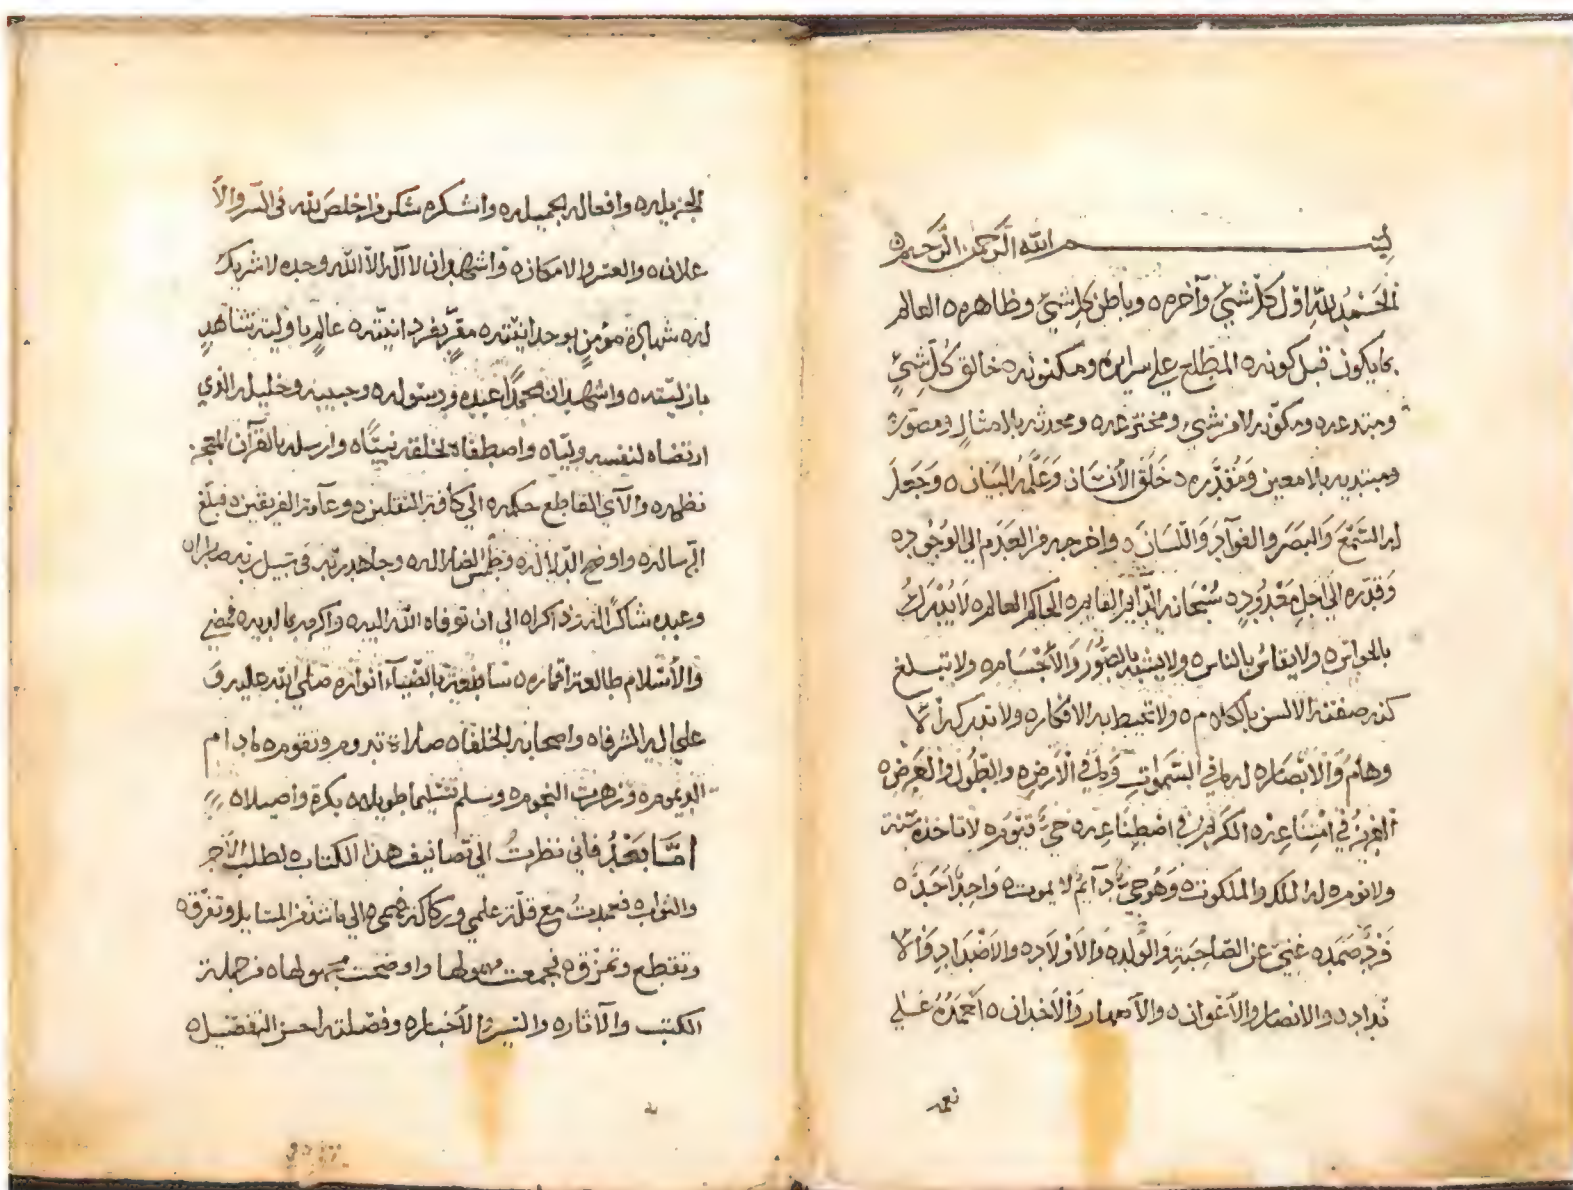 بسم الله الرحمن الرحيم ه
الحَمْدُ للّهِ اوّل كلّ شيْءٍ وآخره ه وباطن كل شيْءٍ وظاهره ه العالم
بما يكون قبل كونه ه المطّلع علي سرايره ومكنونه ه خالق كُلّ شيْءٍ
ومبتدعه ه ومكوّنه لا من شيْء ومخترعه ه ومحدثه بلا مثال ومصوّره
ومبتديه بلا معين وَمُقدَّره ه خَلَقَ الأنسَان وَعَلَّمَهُ البَيَان ه وَجَعَلَ
له السَّمْعَ وَالبَصَر والفوآد وَاللّسَان ه واخرجه من العَدَم الي الوُجُود ه
وَقدّره الَي اجلٍ مَعْدُودٍ ه سُبْحَانه الدَّايم القايم ه الحاكم العالم ه لا يُدْرَكُ
بالحواسّ ه ولا يقاسُ بالناس ه ولا يشبه بالصُّوَرِ وَالأجْسَام ه ولا تبلغ
كنه صفته الالسن بالكلام ه ولا تحيط به الافكار ه ولا تدركه الا
وهام وَالاَبْصَار ه له ما في السَّمَواتِ وَما في الأرضِ ه والطُّول والعَرض ه
العَزيزُ في امْتِنَاعِهْ ه الكَريمُ في اصْطِنَاعِه ه حيٌّ قيّوم ه لا تاخذه سِنة
ولا نوم ه له الملك والملكوت ه وَهُو حيٌّ دآيمٌ لا يموت ه وَاحِدٌ اَحَدٌ ه
فَردٌ صَمَد ه غنِيّ عن الصّاحِبَةِ وَالوَلد ه وَالاَوْلاد ه والاضْدَادِ وَالا
نداد ه والانصار والأعْوان ه والأصهار وَالأخدان ه اَحْمَدُهُ عَلي
نعمه
الجزيله ه وافعاله الجميله ه واشكره شكر من اخلصَ لله في السّر والأ
علان ه والعسر والامكان ه وَاشهد ان لا آله الاّ اللّه وحده لا شريك
له ه شهادة مؤمنٍ بوحدانيّته ه مقرٍّ بفردانيّته ه عالمٍ باوليته شاهدٍ
بازليّته ه واشهد ان محمّداً عبده ورسوله ه وحبيبه وخليله الذي
ارتضاه لنفسه وليّاه واصطفاه لخلقه نبيًّاه وارسله بالقرآن المعجز
نظمه ه والآي القاطع حكمه ه الي كآفة الثقلين ه وعآمة الفريقين ه فبلّغ
الرسالة ه واوضح الدّلالة ه وطمس الضلاله ه وجاهد في سبيل ربه صابرا ه
وعبده شاكراً له وذاكرا ه الي ان توفاه اللّه اليه ه واكرمه بما لديه ه فمضي
وَالأسْلام طالعة اقماره ه سَاطعَة بالضّيآء انواره ه صَلّي اللّه عليه وَ
علي اله الشرفاه واصحابه الخلفاه صلاة تدوم وتقوم ه ما دام
الديموم ه وزهرت النجوم ه وسلم تسْليما طويلا ه بكرة واصيلا ه
امّا بَعْدُ فاني نظرتُ الي تصانيف هذا الكتاب ه لطلب الأجر
والثواب ه فعمدتُ مع قلّة علمي وركاكة فهمي ه الي ما شذ من المسايل وتفرّق ه
وتقطع وتمزّق ه فجمعت ولها واوضحت مجهولها ه من جملة
الكتب والآثار ه والسير والأخبار ه وفصّلته احسن التفصيل ه